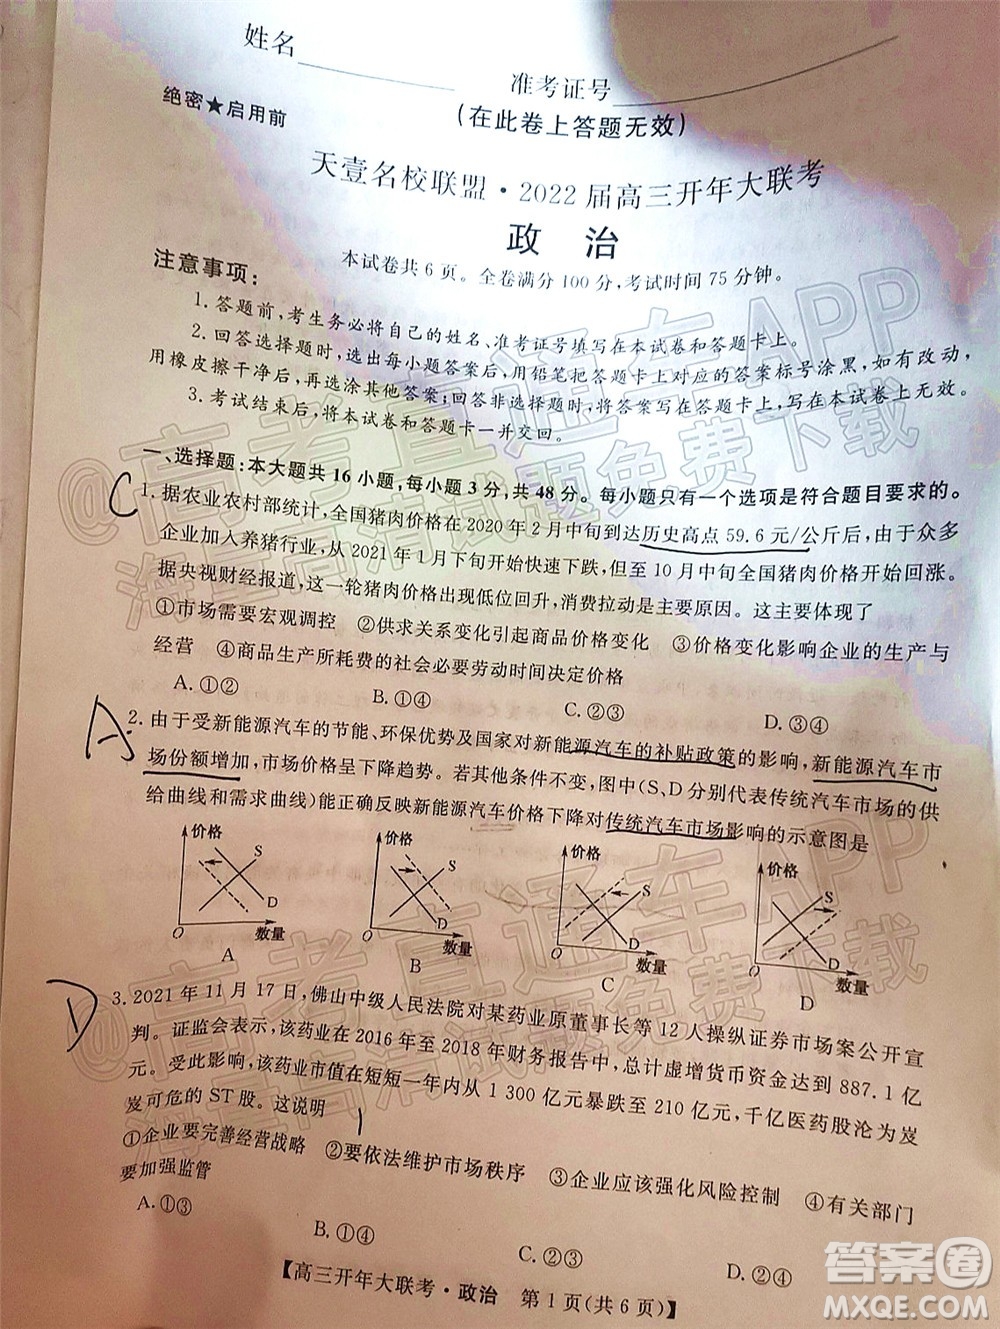 姓名
准考证号
(在此卷上答题无效)
绝密★启用前
天壹名校联盟·2022届高三开年大联考
政 治
本试卷共6页。全卷满分100分,考试时间75分钟。
注意事项:
1.答题前,考生务必将自己的姓名、准考证号填写在本试卷和答题卡上。
2.回答选择题时,选出每小题答案后,用铅笔把答题卡上对应的答案标号涂黑,如有改动,
用橡皮擦干净后,再选涂其他答案;回答非选择题时,将答案写在答题卡上,写在本试卷上无效。
3.考试结束后,将本试卷和答题卡一并交回。
一、选择题:本大题共16小题,每小题3分,共48分。每小题只有一个选项是符合题目要求的。
C
1.据农业农村部统计,全国猪肉价格在2020年2月中旬到达历史高点59.6元/公斤后,由于众多
企业加入养猪行业,从2021年1月下旬开始快速下跌,但至10月中旬全国猪肉价格开始回涨。
据央视财经报道,这一轮猪肉价格出现低位回升,消费拉动是主要原因。这主要体现了
①市场需要宏观调控 ②供求关系变化引起商品价格变化 ③价格变化影响企业的生产与
经营 ④商品生产所耗费的社会必要劳动时间决定价格
A.①② B.①④ C.②③ D.③④
A
2.由于受新能源汽车的节能、环保优势及国家对新能源汽车的补贴政策的影响,新能源汽车市
场份额增加,市场价格呈下降趋势。若其他条件不变,图中(S、D分别代表传统汽车市场的供
给曲线和需求曲线)能正确反映新能源汽车价格下降对传统汽车市场影响的示意图是
价格 S D O 数量 A
价格 S D O 数量 B
价格 S D O 数量 C
价格 S D O 数量 D
D
3.2021年11月17日,佛山中级人民法院对某药业原董事长等12人操纵证券市场案公开宣
判。证监会表示,该药业在2016年至2018年财务报告中,总计虚增货币资金达到887.1亿
元。受此影响,该药业市值在短短一年内从1 300亿元暴跌至210亿元,千亿医药股沦为岌
岌可危的ST股。这说明
①企业要完善经营战略 ②要依法维护市场秩序 ③企业应该强化风险控制 ④有关部门
要加强监管
A.①③ B.①④ C.②③ D.②④
【高三开年大联考·政治 第1页(共6页)】
@高考直通车APP
海量高清试题免费下载
@高考直通车APP
海量高清试题免费下载
答案圈
MXQE.COM